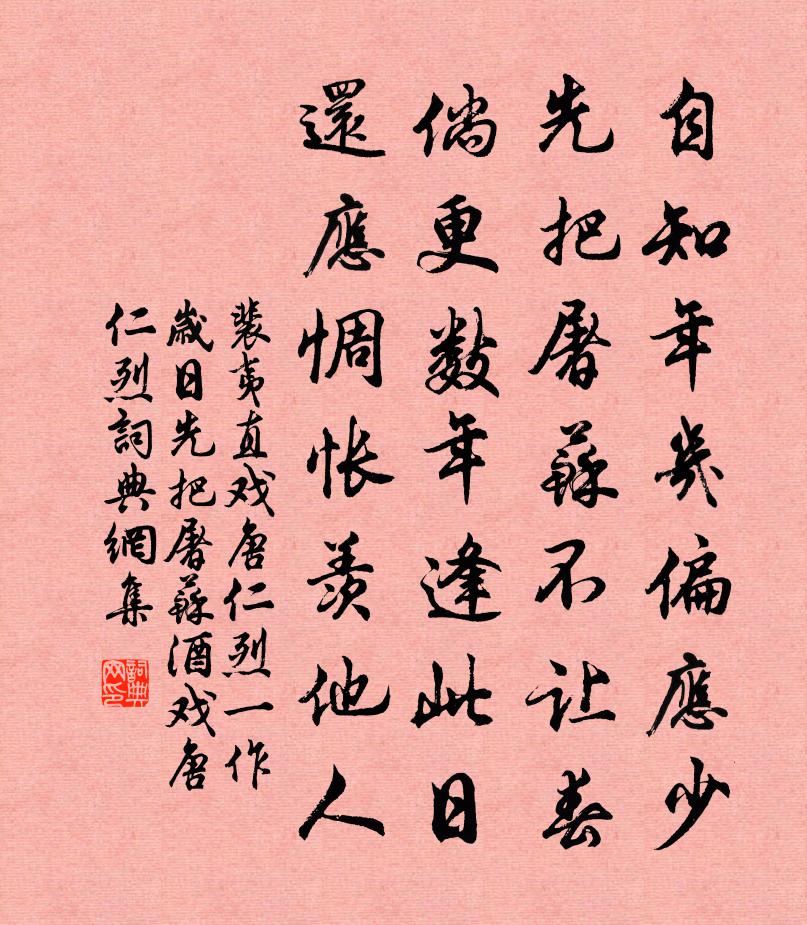 自知年幾偏應少
先把屠蘇不让春
倘更数年逢此日
還應惆怅羨他人
裴夷直戏唐仁烈一作
歲日先把屠蘇酒戏唐
仁烈詞典網集
詞典网印